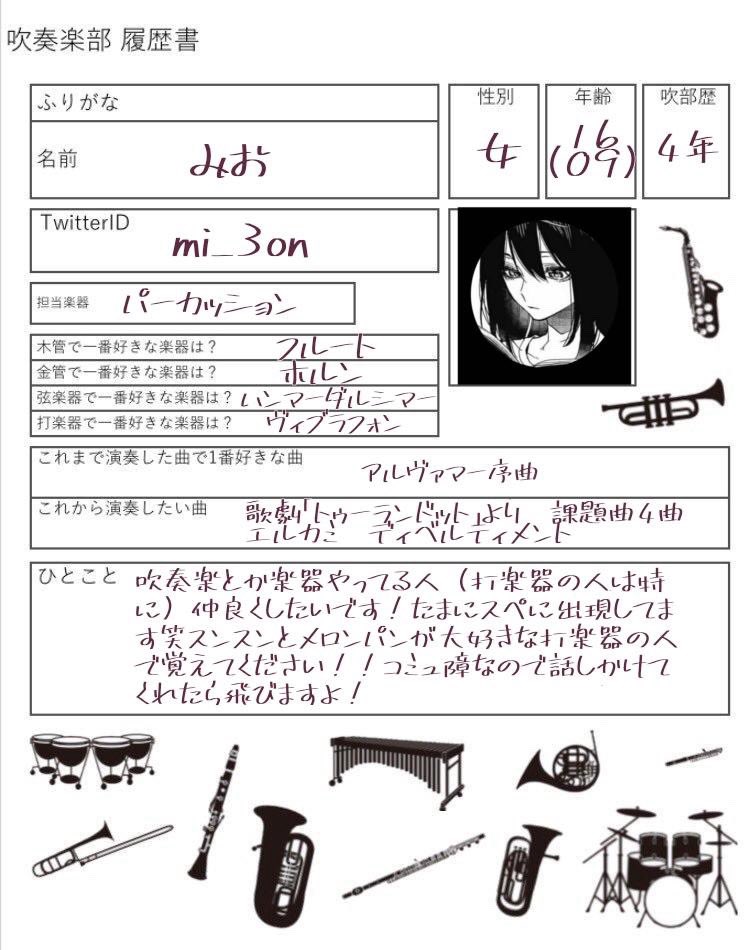 吹奏楽部 履歴書
ふりがな
名前 みお
性別 女
年齢 16 (09)
吹部歴 4年
TwitterID mi_3on
担当楽器 パーカッション
木管で一番好きな楽器は？ フルート
金管で一番好きな楽器は？ ホルン
弦楽器で一番好きな楽器は？ ハンマーダルシマー
打楽器で一番好きな楽器は？ ヴィブラフォン
これまで演奏した曲で1番好きな曲 アルヴァマー序曲
これから演奏したい曲 歌劇「トゥーランドット」より 課題曲4曲
エルカミ ディベルティメント
ひとこと 吹奏楽とか楽器やってる人（打楽器の人は特
に）仲良くしたいです！たまにスペに出現してま
す笑スンスンとメロンパンが大好きな打楽器の人
で覚えてください！！コミュ障なので話しかけて
くれたら飛びますよ！